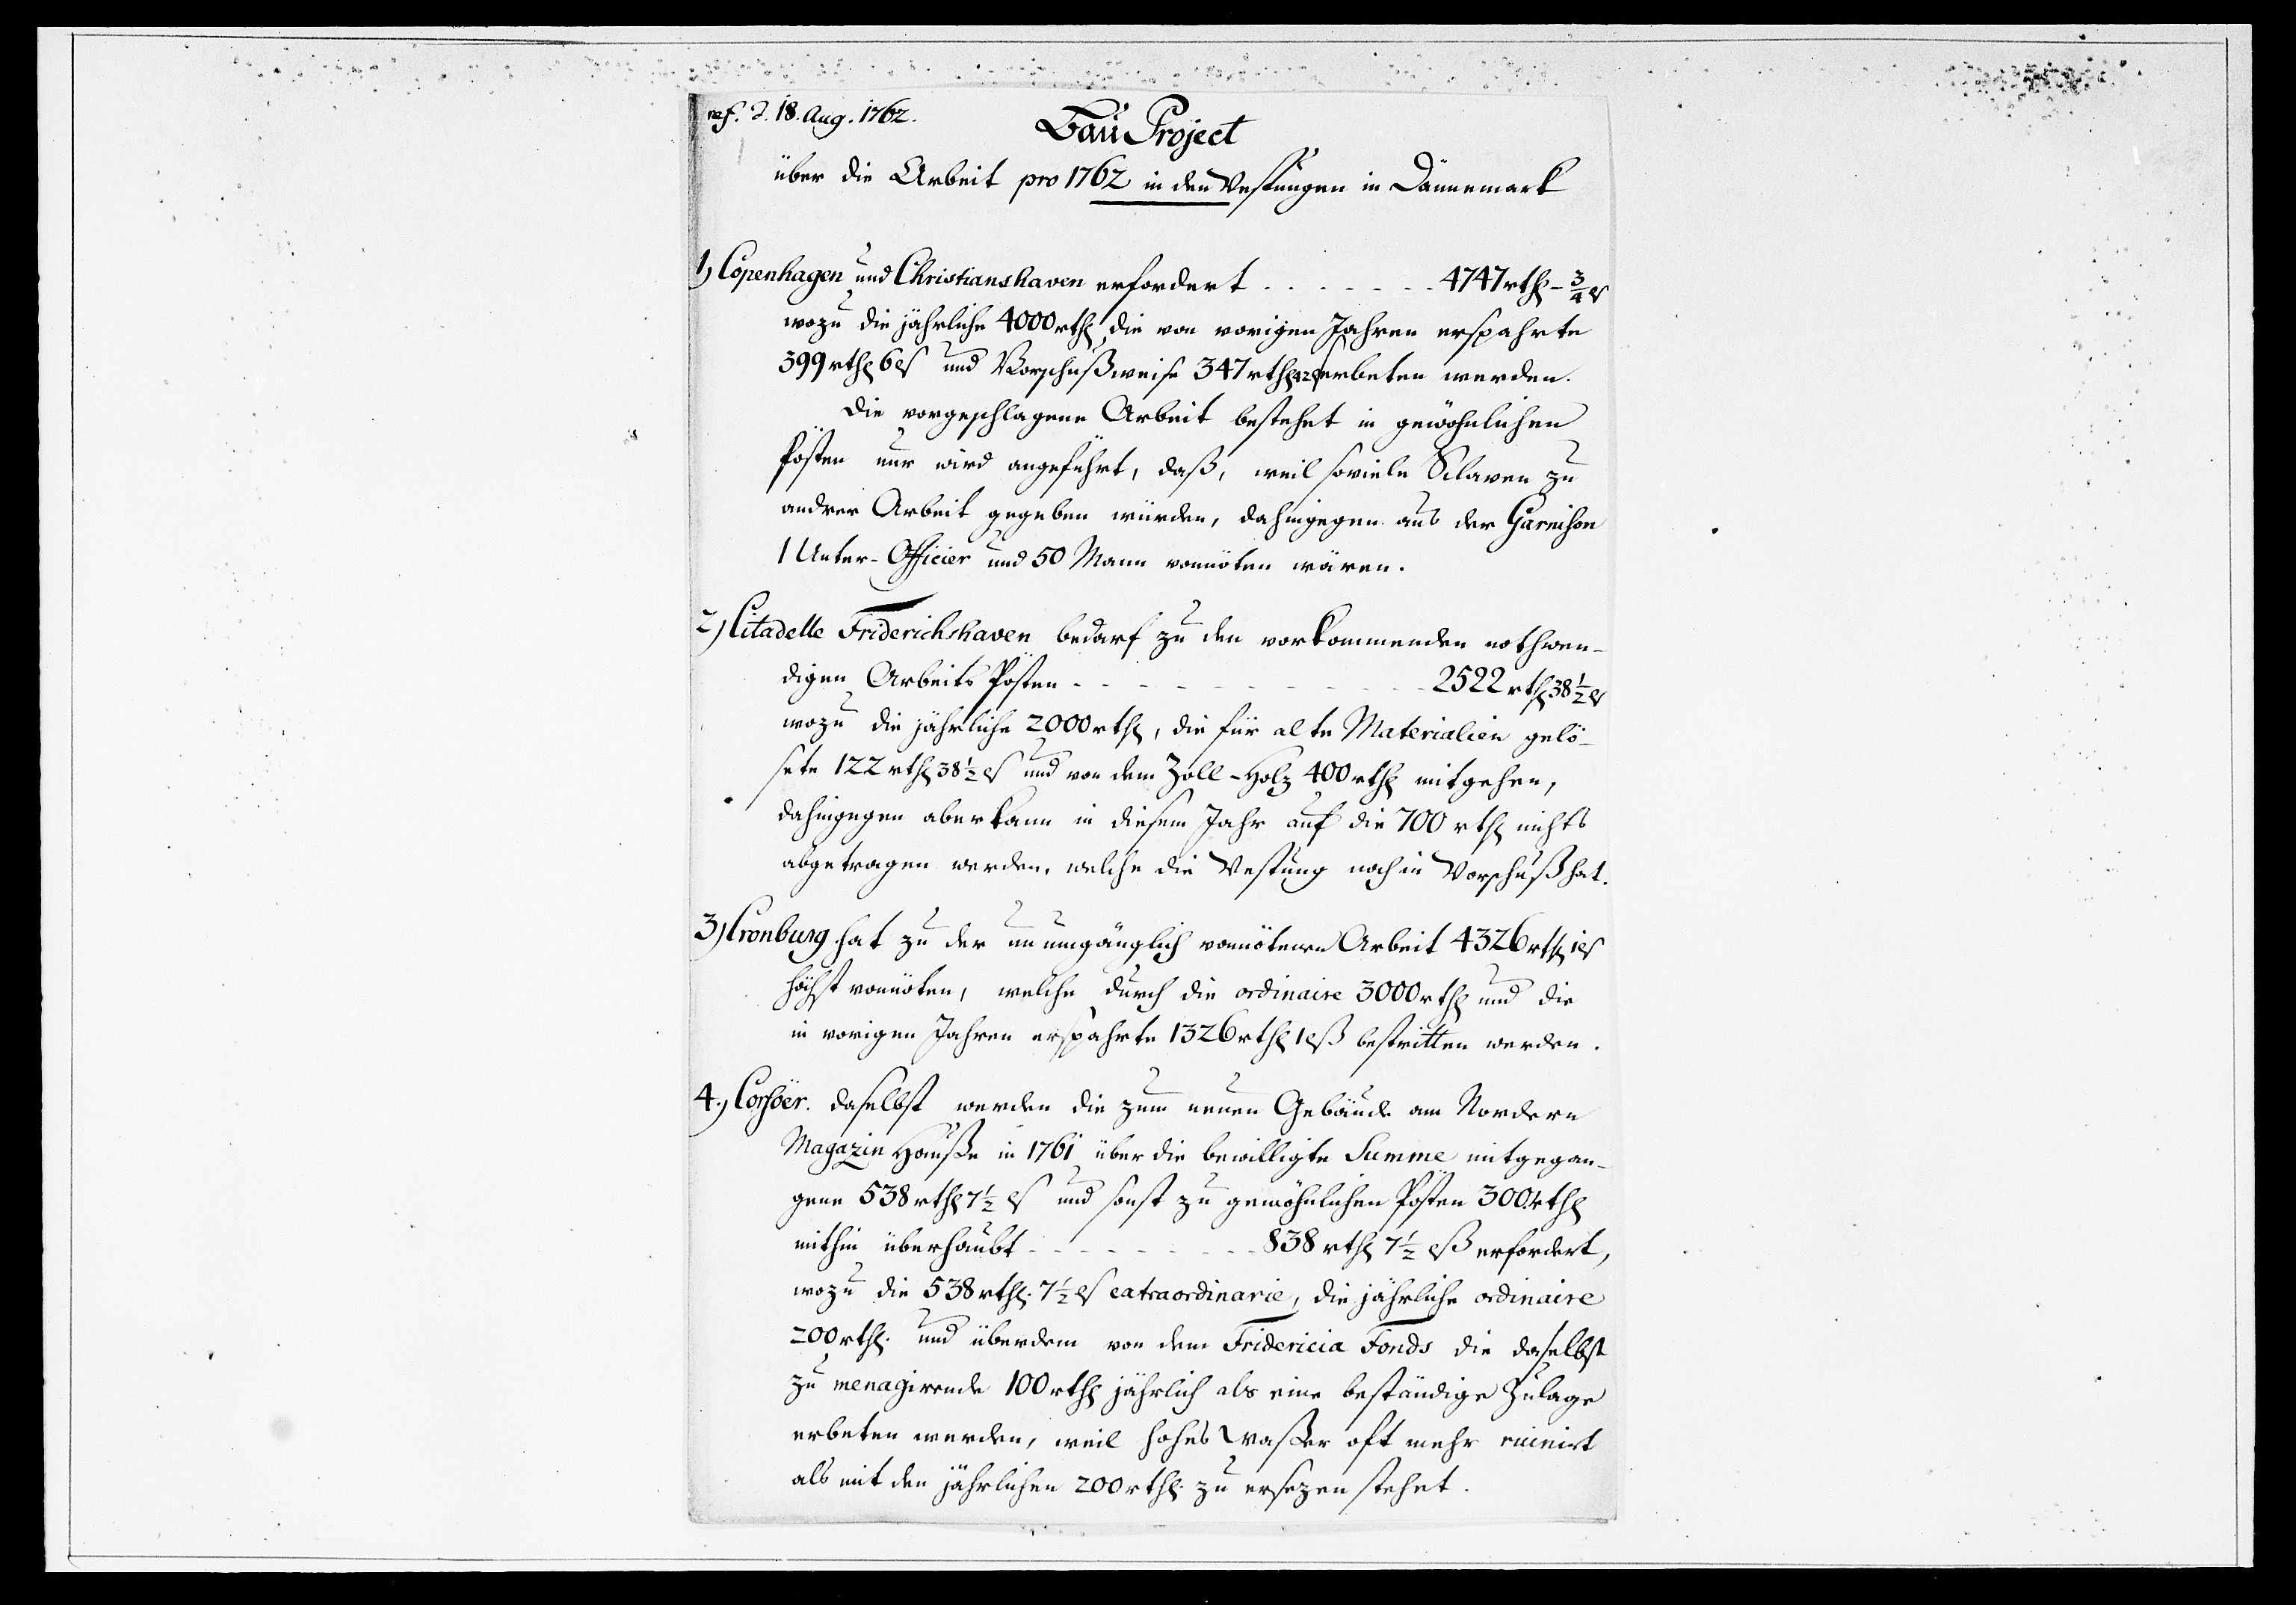 ref. d. 18. Aug. 1762.
Bau Project
über die Arbeit pro 1762 in den Vestungen in Dännemark
1) Copenhagen und Christianshaven erfordert . . . . . . . 4747 rth - 3/4 ß
wozu die jährliche 4000 rth, die von vorigen Jahren erspahrte
399 rth 6 ß und Vorschußweise 347 rth 42 ß erbeten werden.
Die vorgeschlagene Arbeit bestehet in gewöhnlichen
Pösten nur wird angeführt, daß, weil soviele Sclaven zu
andrer Arbeit gegeben würden, dahingegen aus der Garnison
1 Unter-Officier und 50 Mann vonnöten wären.
2) Citadelle Friderichshaven bedarf zu den vorkommenden nothwen-
digen Arbeits Pösten - - - - - - - 2522 rth 38 1/2 ß
wozu die jährliche 2000 rth, die für alte Materialien gelö-
sete 122 rth 38 1/2 ß und von dem Zoll-Holz 400 rth mitgehen,
dahingegen aber kann in diesem Jahr auf die 700 rth nichts
abgetragen werden, welche die Vestung noch in Vorschuß hat.
3) Cronburg hat zu der unumgänglich vonnötenen Arbeit 4326 rth 1 ß
höchst vonnöten, welche durch die ordinaire 3000 rth und die
in vorigen Jahren erspahrte 1326 rth 1 ß bestritten werden.
4.) Corsöer. daselbst werden die zum neuen Gebäude am Nordern
Magazin Hauße in 1761 über die bewilligte Summe mitgegan-
gene 538 rth 7 1/2 ß und sonst zu gewöhnlichen Pösten 300 rth
mithin überhaubt - - - - - - - 838 rth 7 1/2 ß erfordert,
wozu die 538 rth. 7 1/2 ß extraordinarie, die jährliche ordinaire
200 rth. und überdem von dem Fridericia Fonds die daselbst
zu menagirende 100 rth jährlich als eine beständige Zulage
erbeten werden, weil hohes Waßer oft mehr ruinirt
als mit den jährlichen 200 rth. zu ersezen stehet.